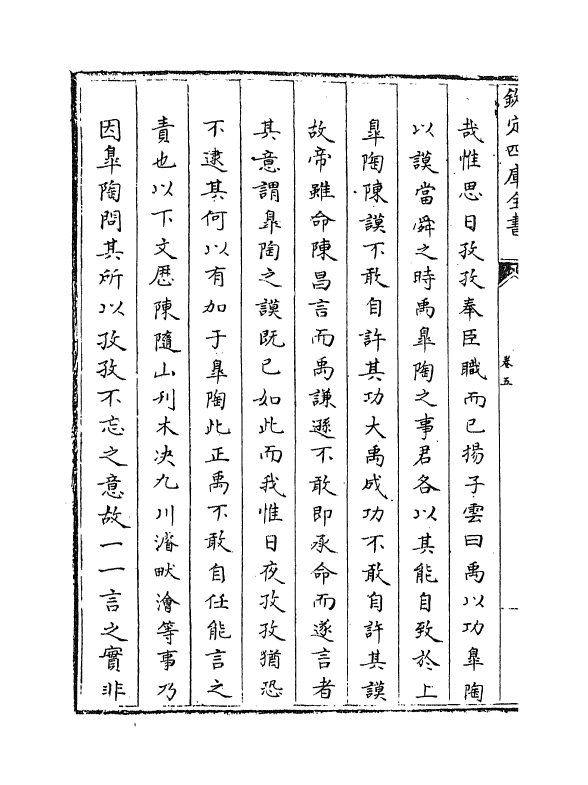 欽定四庫全書
卷五
哉惟思日孜孜奉臣職而已揚子雲曰禹以功臯陶
以謨當舜之時禹臯陶之事君各以其能自致於上
臯陶陳謨不敢自許其功大禹成功不敢自許其謨
故帝雖命陳昌言而禹謙遜不敢即承命而遂言者
其意謂臯陶之謨既已如此而我惟日夜孜孜猶恐
不逮其何以有加于臯陶此正禹不敢自任能言之
責也以下文歴陳隨山刋木决九川濬畎澮等事乃
因臯陶問其所以孜孜不忘之意故一一言之實非